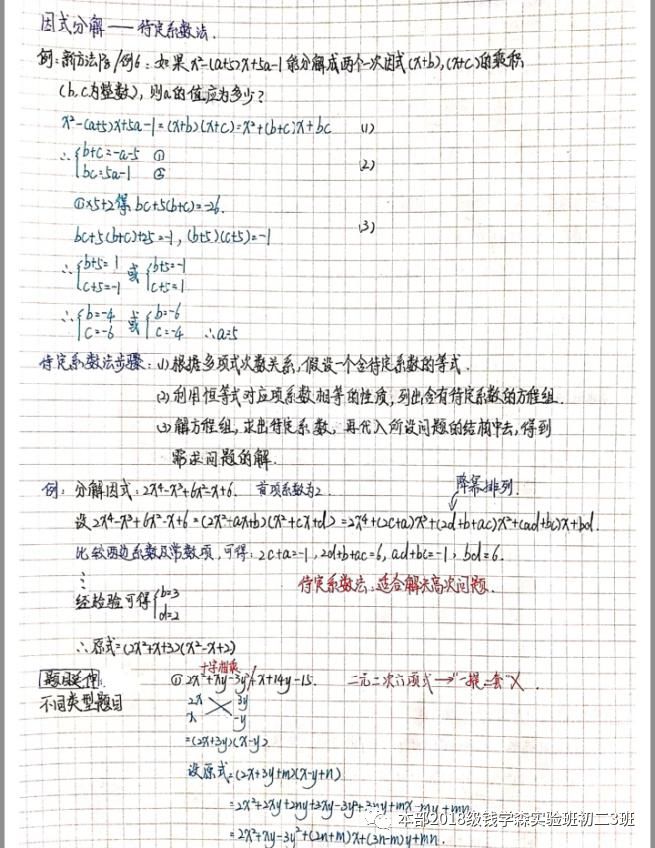 因式分解——待定系数法.
例:新方法P8/例6:如果x²-(a+5)x+5a-1能分解成两个一次因式(x+b),(x+c)的乘积
(b,c为整数),则a的值应为多少?
x²-(a+5)x+5a-1=(x+b)(x+c)=x²+(b+c)x+bc (1)
∴{b+c=-a-5 ①
bc=5a-1 ② (2)
①×5+2得 bc+5(b+c)=-26.
bc+5(b+c)+25=-1,(b+5)(c+5)=-1 (3)
∴{b+5=1 或 {b+5=-1
c+5=-1 c+5=1
∴{b=-4 或 {b=-6
c=-6 c=-4 ∴a=5
待定系数法步骤:(1)根据多项式次数关系,假设一个含待定系数的等式.
(2)利用恒等式对应项系数相等的性质,列出含有待定系数的方程组.
(3)解方程组,求出待定系数,再代入所设问题的结构中去,得到
需求问题的解.
例:分解因式:2x⁴-x³+6x²-x+6. 首项系数为2. 降幂排列.
设2x⁴-x³+6x²-x+6=(2x²+ax+b)(x²+cx+d)=2x⁴+(2c+a)x³+(2d+b+ac)x²+(ad+bc)x+bd.
比较两边系数及常数项,可得:2c+a=-1,2d+b+ac=6,ad+bc=-1,bd=6.
⋮
经检验可得{b=3 待定系数法,适合解决高次问题.
d=2
∴原式=(2x²+x+3)(x²-x+2)
题目延伸: 十字相乘
①2x²+xy-3y²+x+14y-15. 二元二次六项式→"一提二套"X.
不同类型题目
2x 3y
x -y
=(2x+3y)(x-y)
设原式=(2x+3y+m)(x-y+n)
=2x²+2xy+2ny+3xy-3y²+3ny+mx-my+mn
=2x²+xy-3y²+(2n+m)x+(3n-m)y+mn.
本部2018级钱学森实验班初二3班